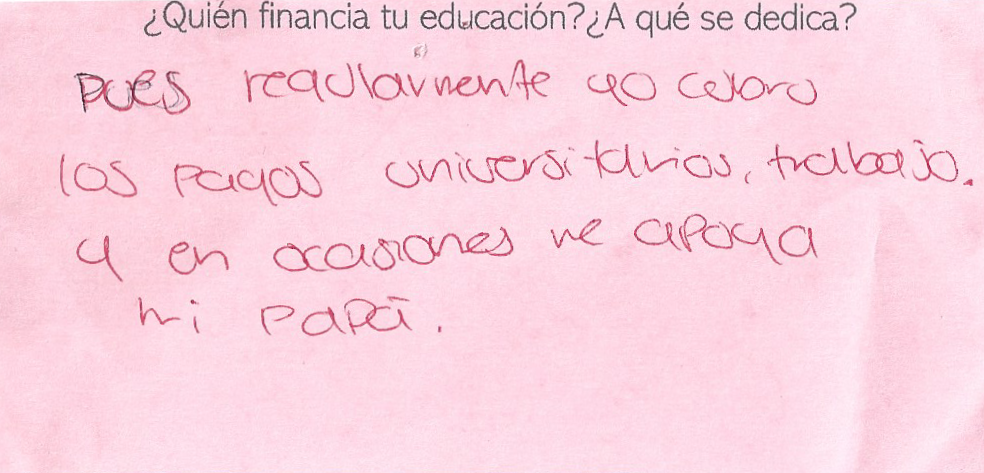 ¿Quién financia tu educación?¿A qué se dedica?
pues regularmente yo cubro
los pagos universitarios, trabajo.
y en ocasiones me apoya
mi papá.